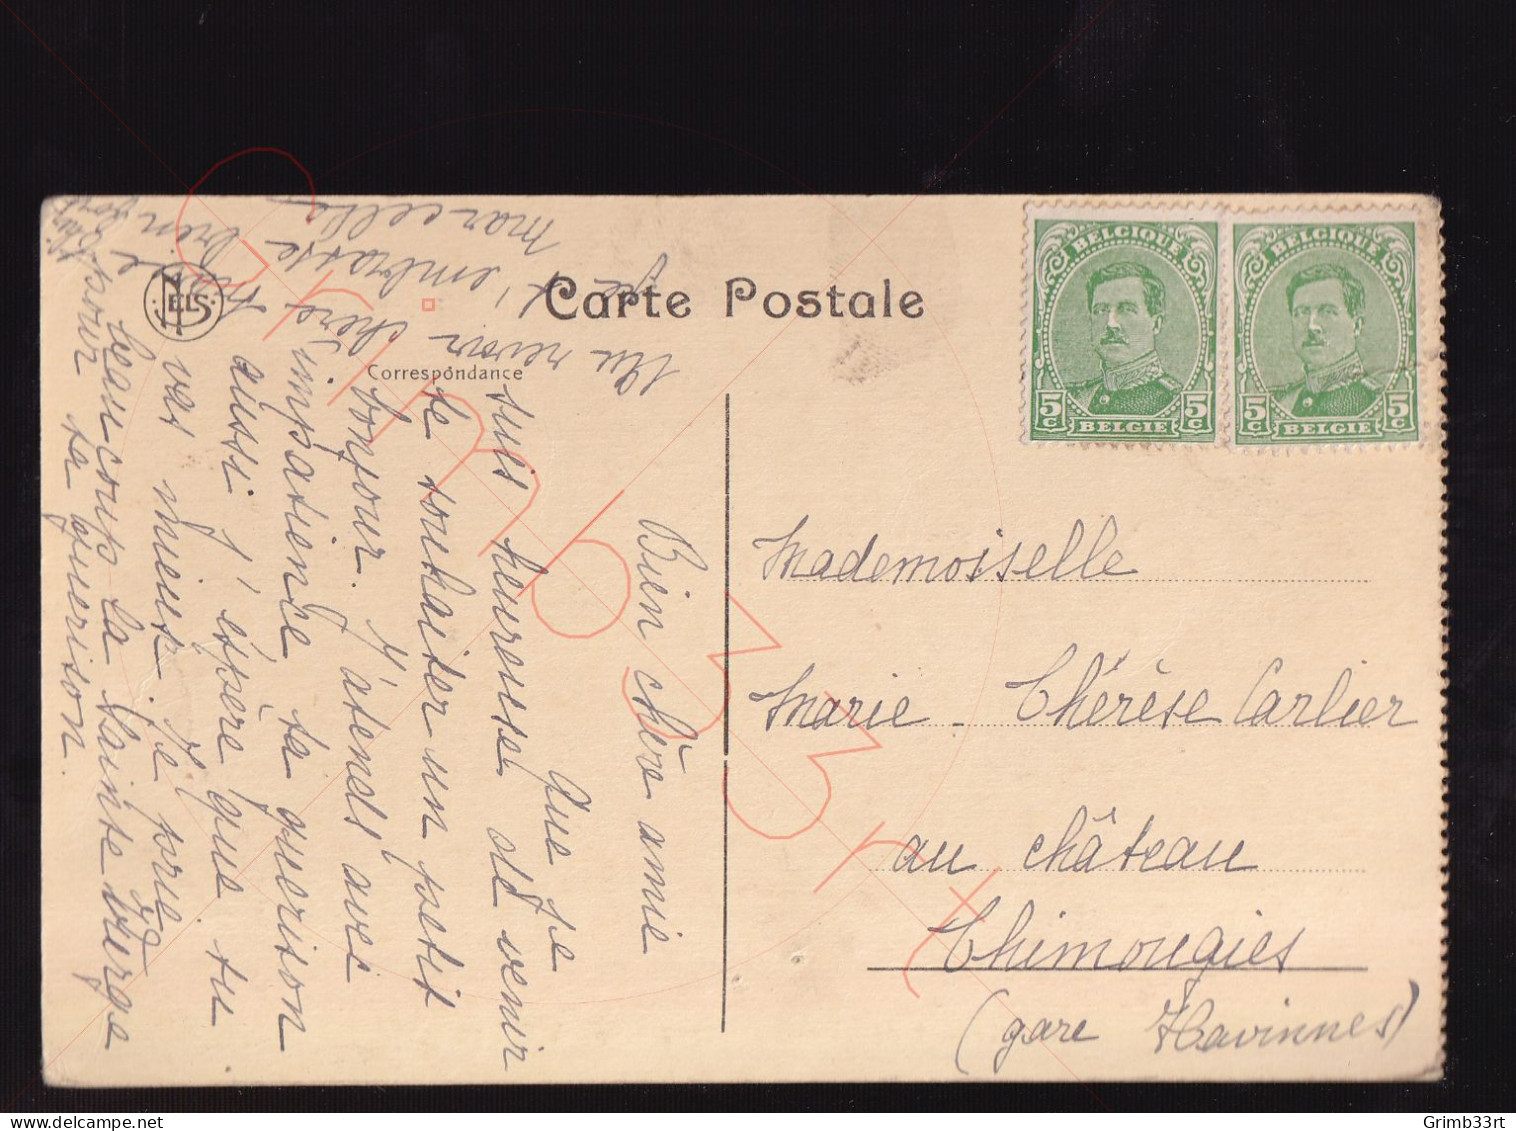 Carte Postale
Correspondance
NELS
BELGIQUE
5c 5c
BELGIE
BELGIQUE
5c 5c
BELGIE
Mademoiselle
Marie - Thérèse Carlier
au château
Thimougies
(gare Havinnes)
Bien chère amie
Que je
suis heureuse de venir
te souhaiter un petit
bonjour. J'átends avec
impatience ta guerison
aussi j'éspère que tu
vas mieux. Je prie
beaucoup la Sainte Vierge
pour ta guerison.
Au revoir chère
Je t'embrasse bien
fort
Marcelle
Grimb33rt
delcampe.net
Grimb33rt